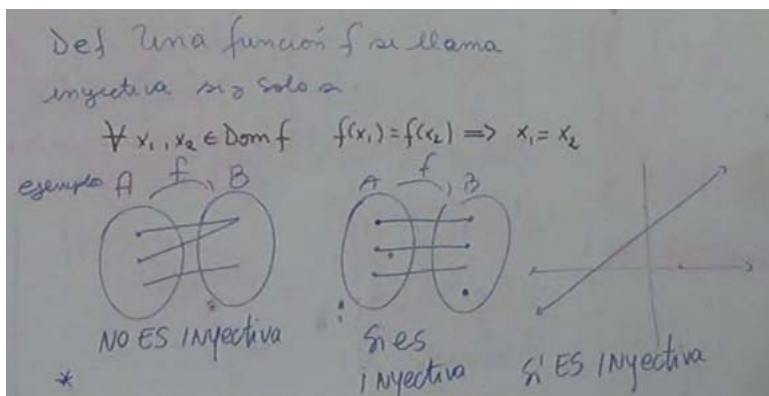 Def Una función f se llama
inyectiva si y solo si
∀ x₁, x₂ ∈ Dom f f(x₁) = f(x₂) => x₁ = x₂
ejemplo A f B A f B
NO ES INyectiva Si es inyectiva Si ES INyectiva
*